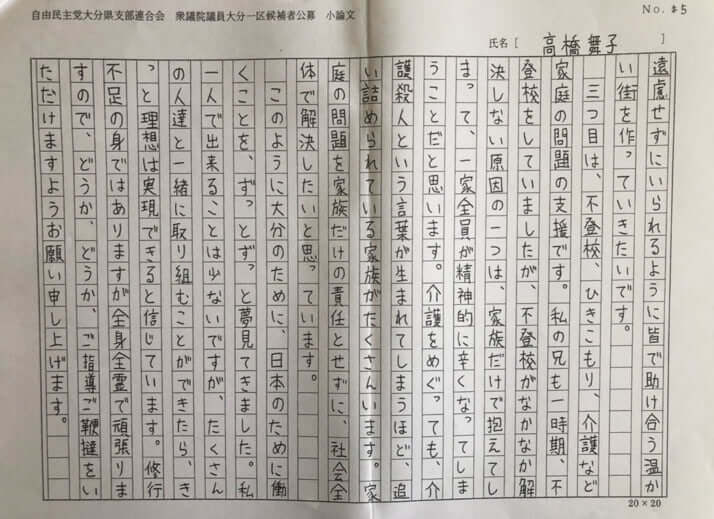 自由民主党大分県支部連合会 衆議院議員大分一区候補者公募 小論文
No. #5
氏名［ 高橋舞子 ］
遠慮せずにいられるように皆で助け合う温か
い街を作っていきたいです。
三つ目は、不登校、ひきこもり、介護など
家庭の問題の支援です。私の兄も一時期、不
登校をしていましたが、不登校がなかなか解
決しない原因の一つは、家族だけで抱えてし
まって、一家全員が精神的に辛くなってしま
うことだと思います。介護をめぐっても、介
護殺人という言葉が生まれてしまうほど、追
い詰められている家族がたくさんいます。家
庭の問題を家族だけの責任とせずに、社会全
体で解決したいと思っています。
このように大分のために、日本のために働
くことを、ずっとずっと夢見てきました。私
一人で出来ることは少ないですが、たくさん
の人達と一緒に取り組むことができたら、き
っと理想は実現できると信じています。修行
不足の身ではありますが全身全霊で頑張りま
すので、どうか、どうか、ご指導ご鞭撻をい
ただけますようお願い申し上げます。
20×20